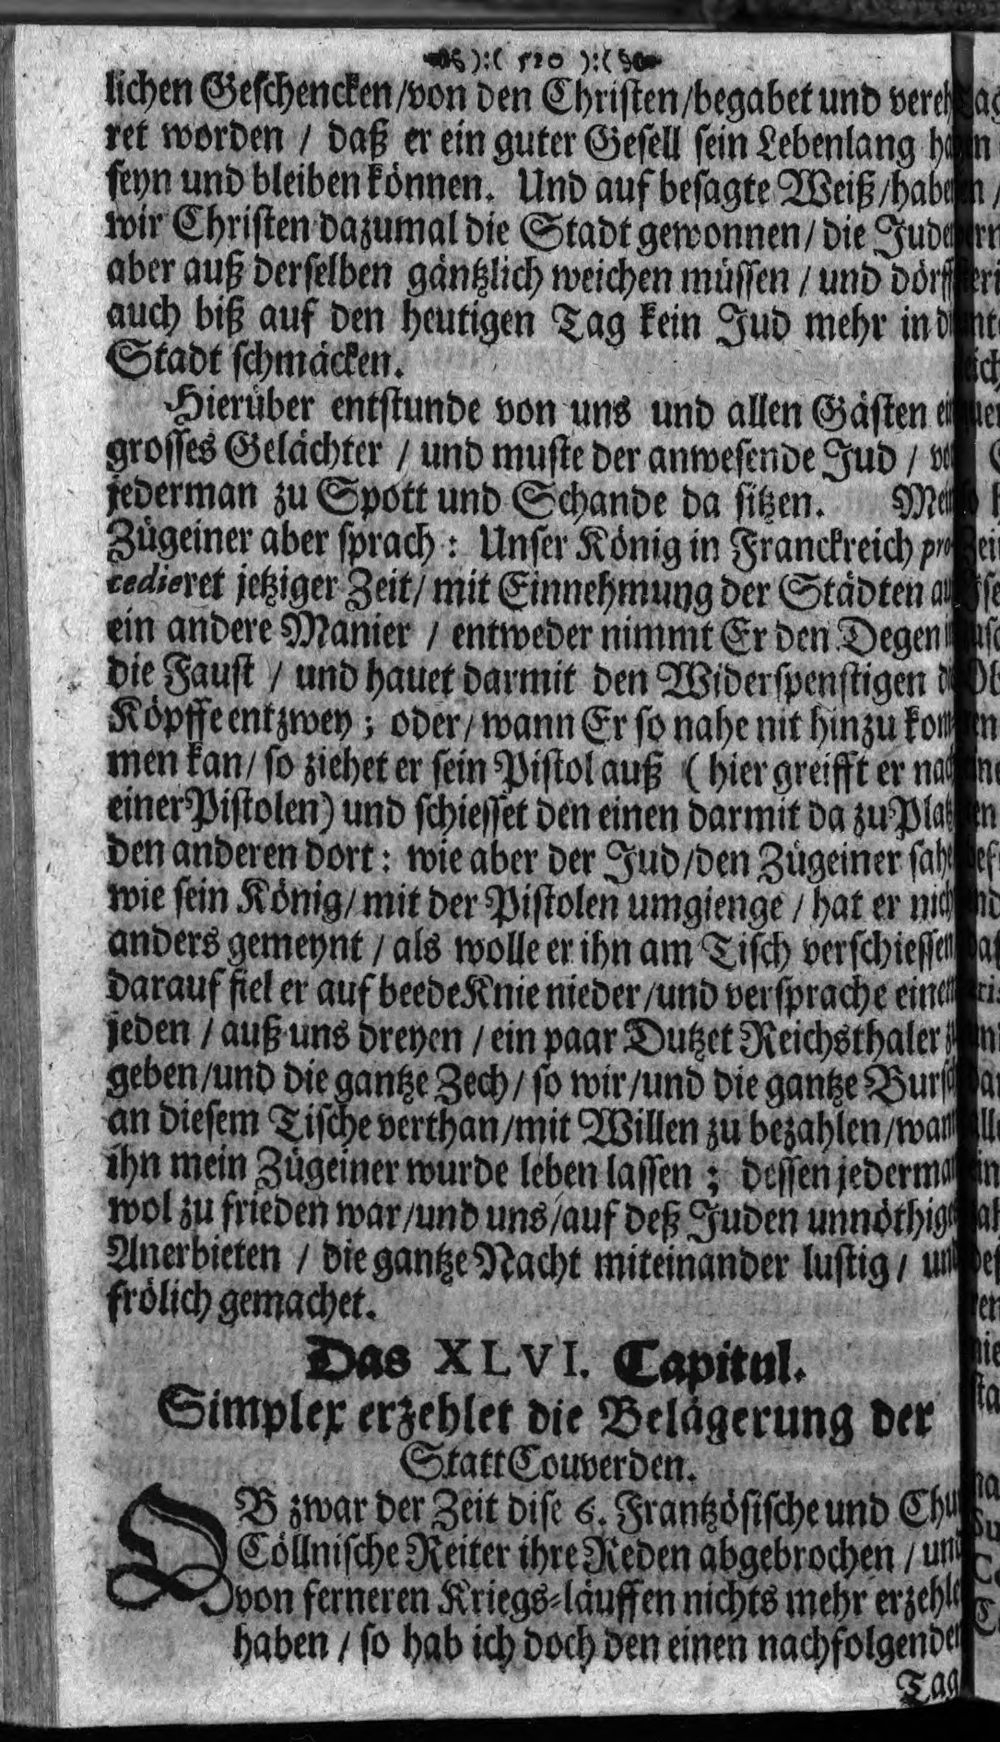 ):( 520 ):(
lichen Geschencken/von den Christen/begabet und vereh
ret worden / daß er ein guter Gesell sein Lebenlang
seyn und bleiben können. Und auf besagte Weiß/habe
wir Christen dazumal die Stadt gewonnen/ die Jude
aber auß derselben gäntzlich weichen müssen / und dörff
auch biß auf den heutigen Tag kein Jud mehr in
Stadt schmäcken.
Hierüber entstunde von uns und allen Gästen
grosses Gelächter / und muste der anwesende Jud /
jederman zu Spott und Schande da sitzen. Mein
Zügeiner aber sprach: Unser König in Franckreich pro-
cedieret jetziger Zeit/ mit Einnehmung der Städten
ein andere Manier / entweder nimmt Er den Degen
die Faust / und hauet darmit den Widerspenstigen
Köpffe entzwey; oder/ wann Er so nahe nit hinzu kom
men kan/ so ziehet er sein Pistol auß (hier greifft er nach
einer Pistolen) und schiesset den einen darmit da zu Platz
den anderen dort: wie aber der Jud/den Zügeiner sahe
wie sein König/mit der Pistolen umgienge / hat er nich
anders gemeynt / als wolle er ihn am Tisch verschiessen
darauf fiel er auf beede Knie nieder/und versprache einen
jeden / auß uns dreyen / ein paar Dutzet Reichsthaler
geben/und die gantze Zech/ so wir/und die gantze Bursch
an diesem Tische verthan/mit Willen zu bezahlen/wann
ihn mein Zügeiner wurde leben lassen; dessen jederman
wol zu frieden war/und uns/auf deß Juden unnöthige
Anerbieten / die gantze Nacht miteinander lustig / und
frölich gemachet.
Das XLVI. Capitul.
Simplex erzehlet die Belägerung der
Statt Couverden.
OB zwar der Zeit dise 6. Frantzösische und Chu
Cöllnische Reiter ihre Reden abgebrochen / und
von ferneren Kriegs-läuffen nichts mehr erzehle
haben / so hab ich doch den einen nachfolgenden
Tag